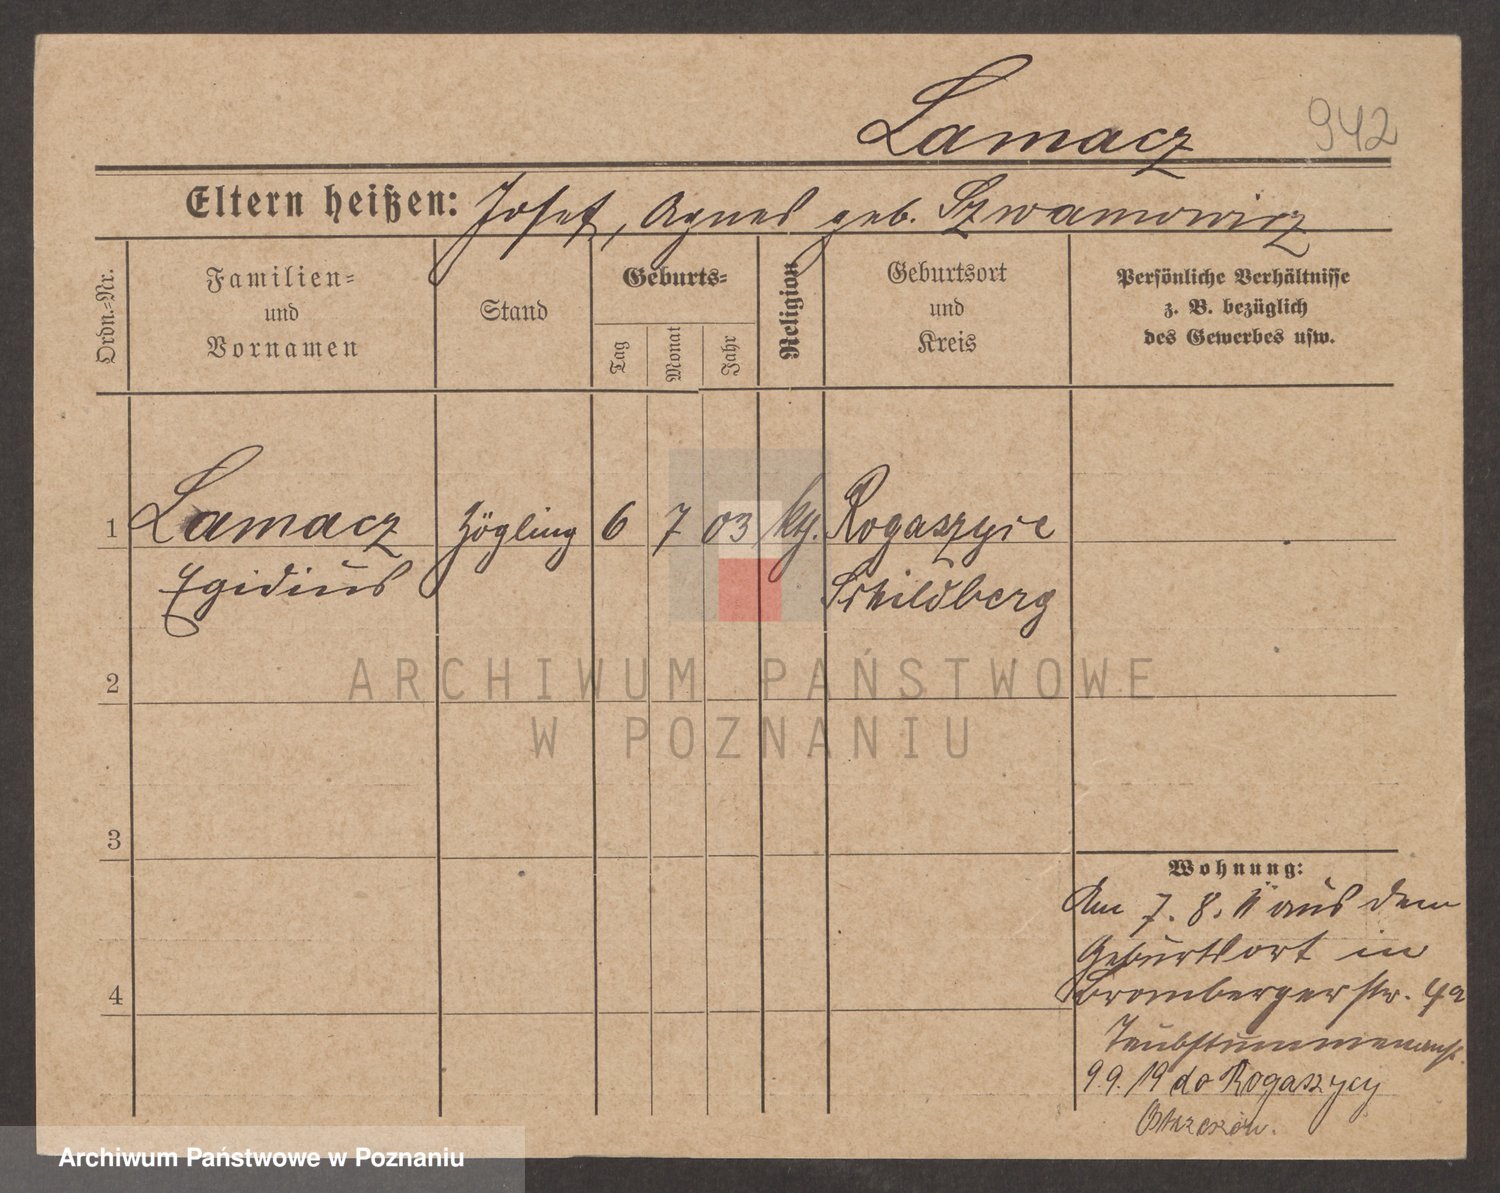 Lamacz 942
Eltern heißen: Josef, Agnes geb. Szwamowicz
Ordn.=Nr.
Familien=
und
Vornamen
Stand
Geburts=
Tag
Monat
Jahr
Religion
Geburtsort
und
Kreis
Persönliche Verhältnisse
z. B. bezüglich
des Gewerbes usw.
1 Lamacz Zögling 6 7 03 Rogaszyce
Egidius Schildberg
2
3
4
Wohnung:
Am 7. 8. 11 aus dem
Geburtsort in
Brombergerstr. 4a
Taubstummenanst.
9.9.19 do Rogaszycy
Ostrzeszów.
ARCHIWUM PAŃSTWOWE
W POZNANIU
Archiwum Państwowe w Poznaniu